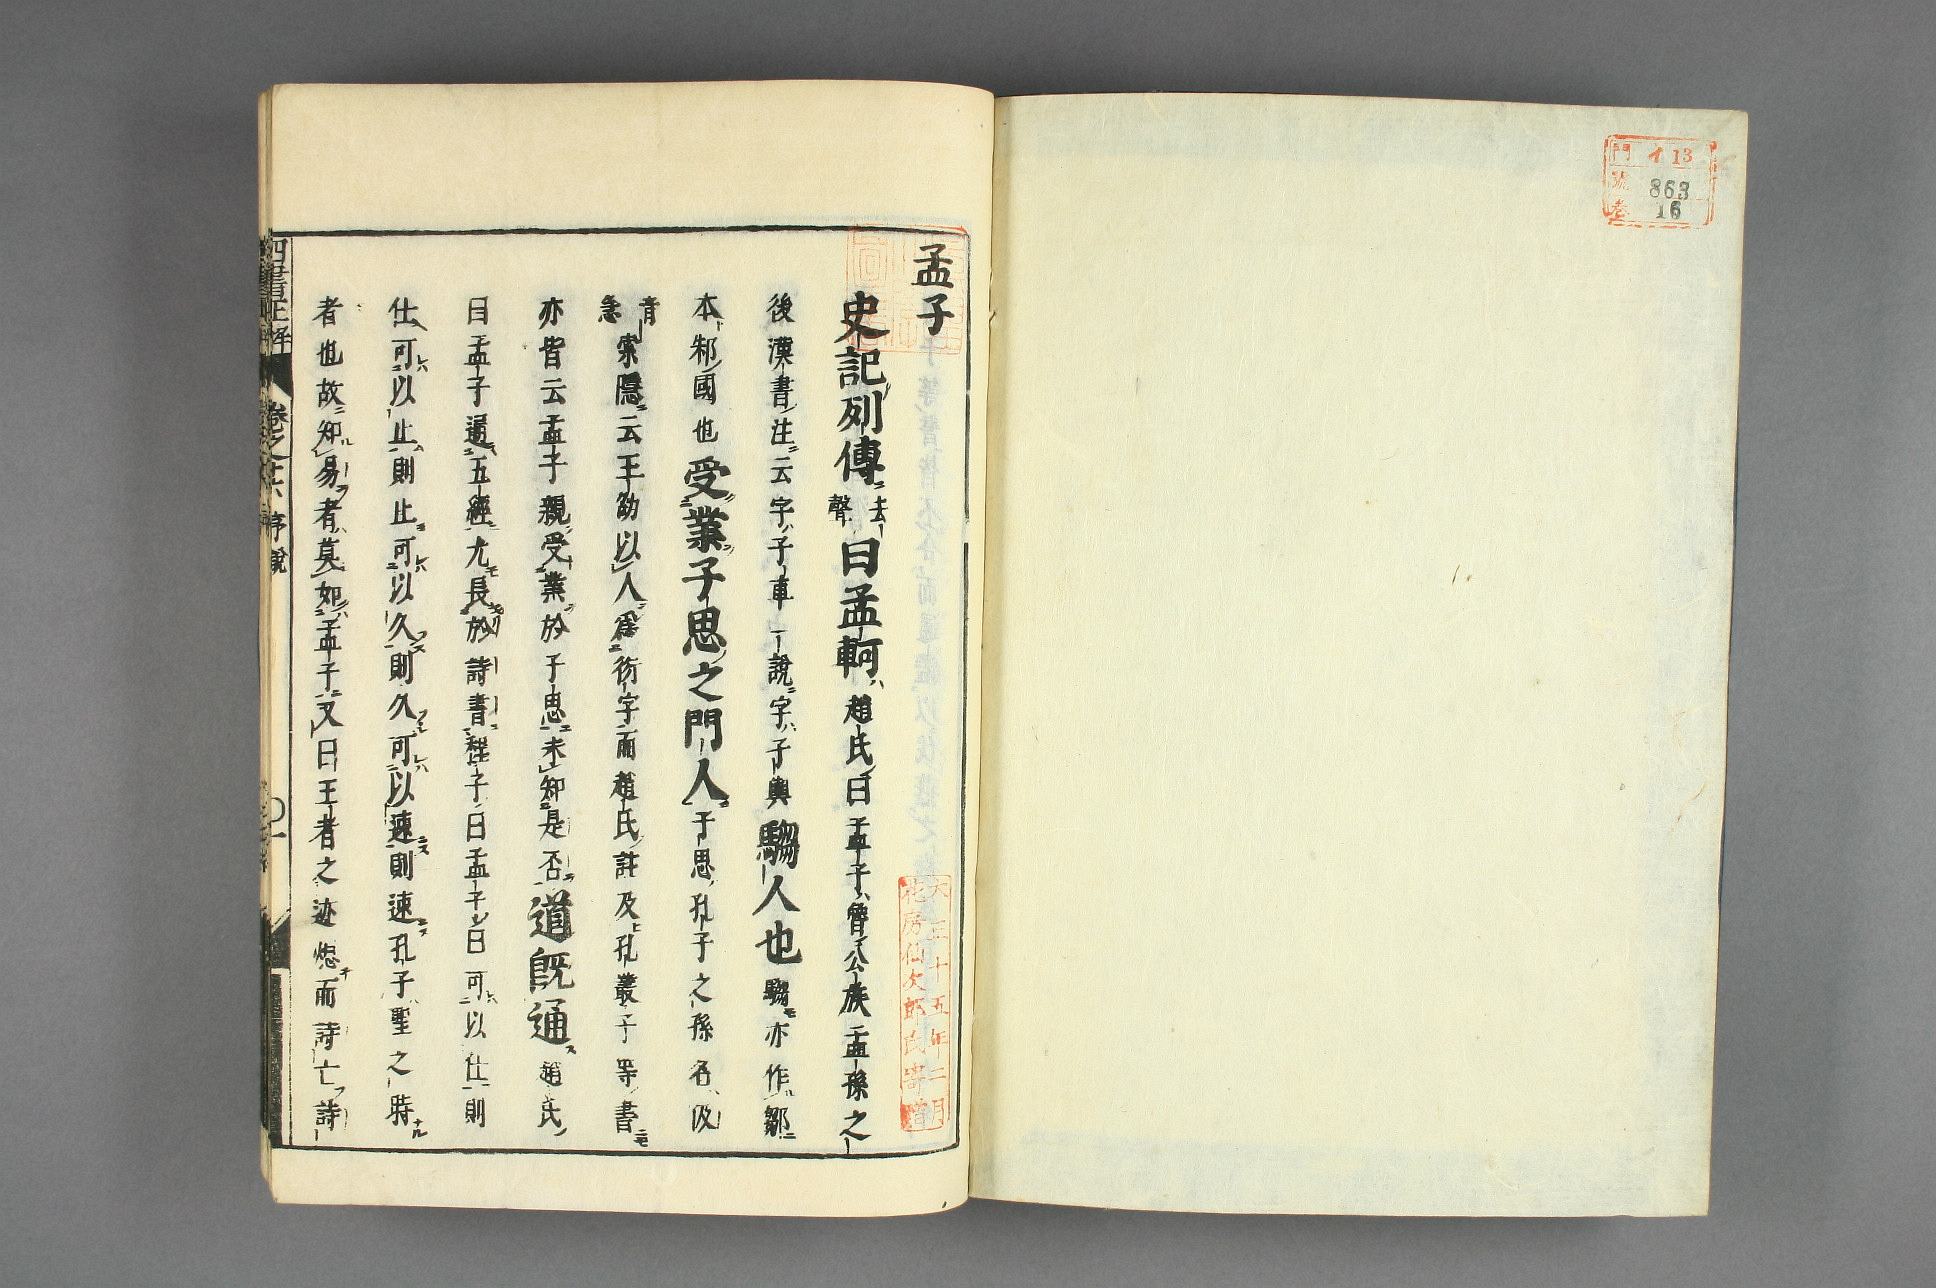 門 イ13
號 863
卷 16
孟子
史記列傳去聲曰孟軻趙氏曰孟子魯公族孟孫之
後漢書注云字子車一說字子輿騶人也騶亦作鄒
本邾國也受業子思之門人子思孔子之孫名伋
音急索隱云王劭以人爲衍字而趙氏註及孔叢子等書
亦皆云孟子親受業於子思未知是否道既通趙氏
曰孟子通五經尤長於詩書程子曰孟子曰可以仕則
仕可以止則止可以久則久可以速則速孔子聖之時
者也故知易者莫如孟子又曰王者之迹熄而詩亡詩
大正十五年二月
花房仙次郎氏寄贈
四書正
卷之十六 序說